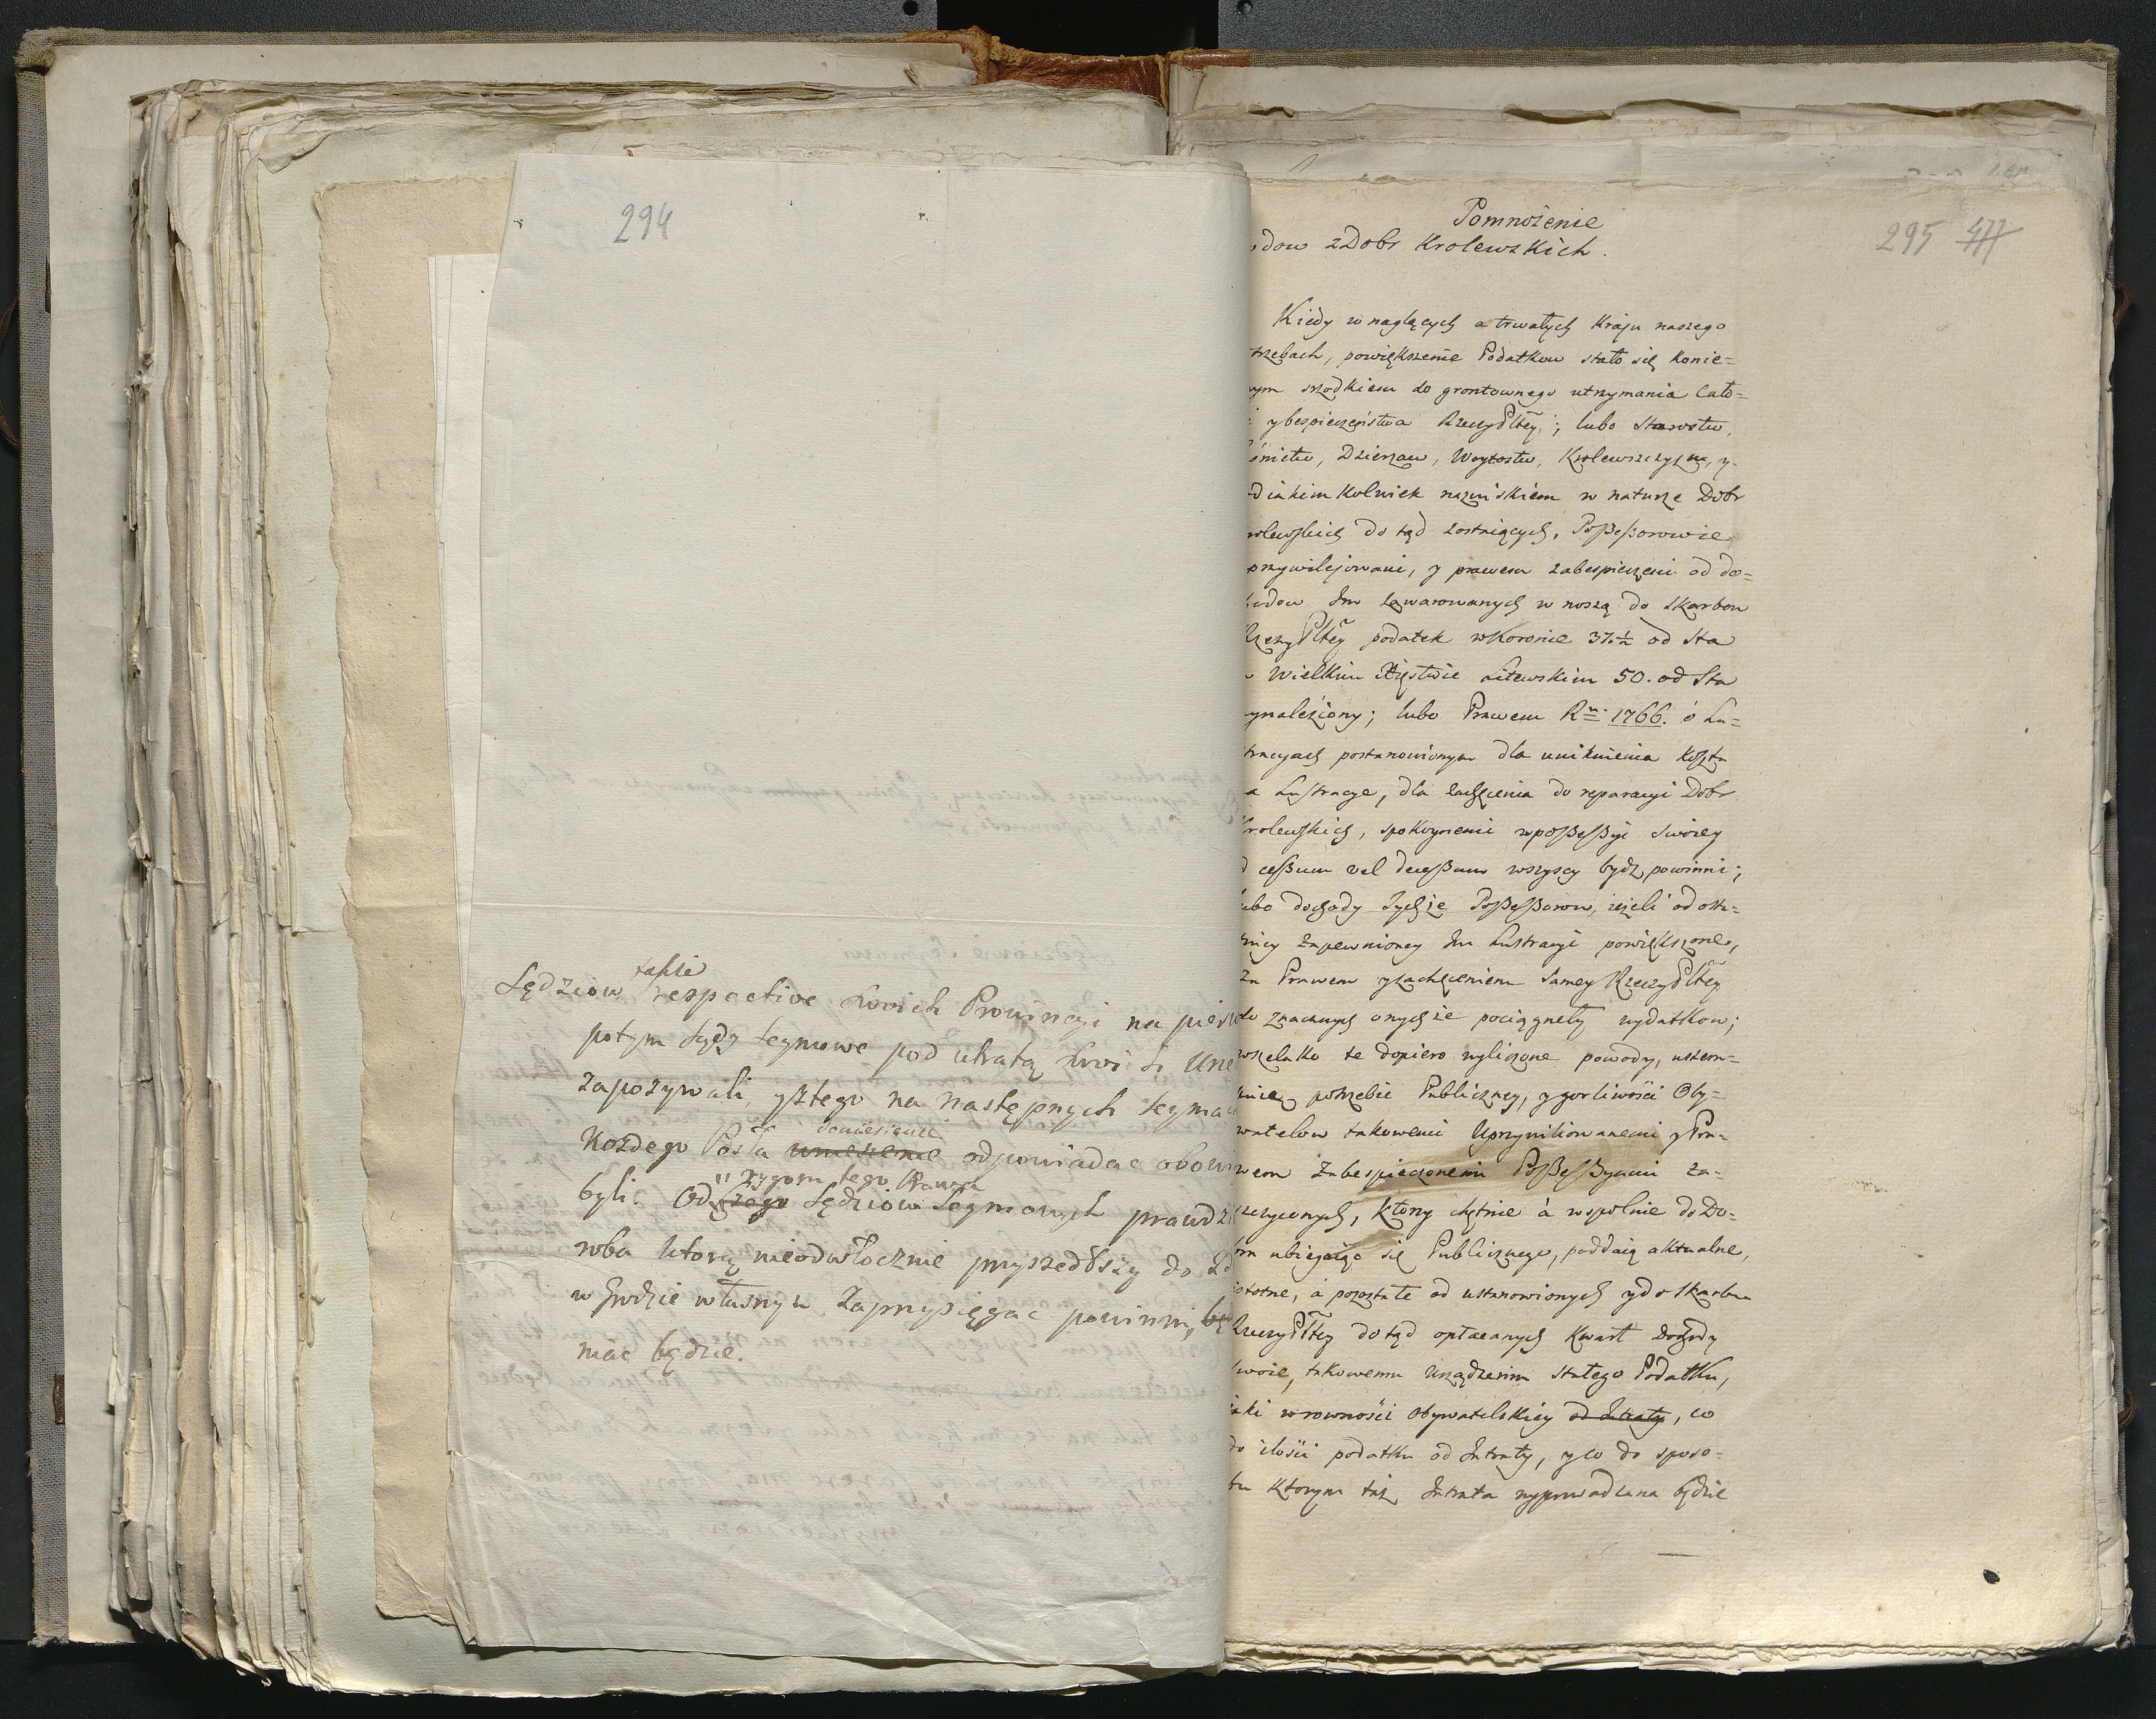 294
Sędziow takie respective swoich Prowincyi na
potym Sądy Seymowe pod utratą
zapozywali, yztego na następnych
Kozdego Posła ~~umesienie~~ doniesienie odpowiadac
byli. Od ~~czego~~ Rygoru tego Prawa Sędziow Seymowych
roba ktorą nieodwłocznie przyszedłszy do
w Grodzie własnym zaprzysięgac powinni,
miac będzie.
295 ~~477~~
Pomnożenie
dow z Dobr Krolewskich.
Kiedy w naglących a trwałych Kraju naszego
trzebach, powiększenie Podatkow stało się konie=
nym srzodkiem do grontownego utrzymania Cało=
y bespieczeństwa RzeczyPltey; lubo Starostw,
Dzierzaw, Woytostw, Krolewszczyzn, y
iakim Kolwiek nazwiskiem w naturze Dobr
rolewskich do tąd zostaiących, Possessorowie
przywilejowani, y prawem zabespieczeni od do=
Im zawarowanych w noszą do Skarbou
RzeczyPltey podatek w Koronie 37 ½ od Sta
Wielkim Xięstwie Litewskim 50. od Sta
ynaleziony; lubo Prawem R. 1766. o Lu=
stracyach postanowionym dla uniknienia kosztu
a Lustracye, dla zachęcenia do reparacyi Dobr
Krolewskich, spokoynemi w possessyi swoiey
d cessum vel decessum wszyscy bydz powinni;
ubo dochody Tychże Possessorow, ieżeli od osta=
tniey zapewnioney Im Lustracyi powiększone,
za Prawem y zachęceniem Samey RzeczyPltey
do znacznych onychże pociągneły wydatkow;
wszelako te dopiero wyliczone powody,
potrzebie Publiczney, y gorliwości Oby=
watelow takowemi Uprzywiliowanemi y Pra=
wem Zabespieczonemi Possessyami za=
szczyconych, ktorzy chętnie á wspolnie do Do=
bra ubiegaiąc się Publicznego, poddaią aktualne,
istotne, á pozostałe od ustanowionych y do Skarbu
RzeczyPltey do tąd opłacanych Kwart Dochody
swoie, takowemu Urządzeniu stałego Podatku,
iaki w rowności Obywatelskiey ~~od Intraty~~, co
do ilości podatku od Intraty, y co do sposo=
bu ktorym taż Intrata wyprowadzana będzie